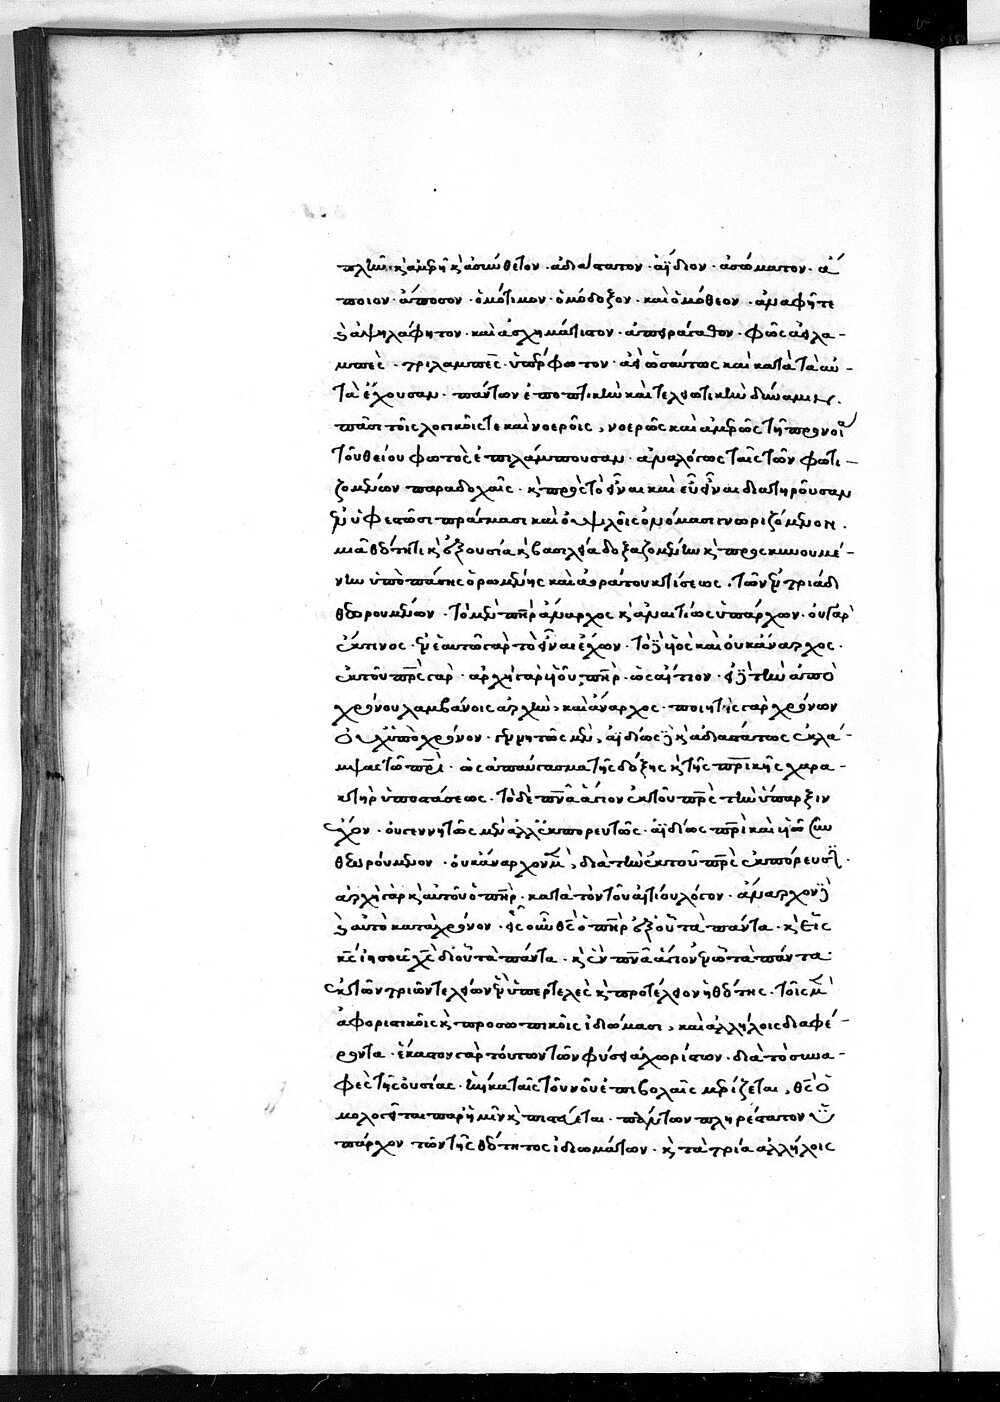 πλῆν· κ̀ ἀμερῆ κ̀ ἀσύνθετον· ἀδιάστατον· ἀΐδιον· ἀσώματον· ἄ
ποιον· ἄποσον· ὁμότιμον· ὁμόδοξον· καὶ ὁμόθεον· ἀναφῆ τε
κ̀ ἀψηλάφητον· καὶ ἀσχημάτιστον· ἀπεράγαθον· φῶς ἀεὶ λα-
μπὲς· τριλαμπὲς· ὑπέρφωτον· ἀεὶ ὡσαύτως καὶ κατὰ τὰ αὐ-
τὰ ἔχουσαν· πάντων ἐποπτικὴν καὶ τελεωτικὴν δύναμιν·
πᾶσι τοῖς λογικοῖς τε καὶ νοεροῖς, νοερῶς καὶ ἀμερῶς τῇ προνοία
τοῦ θείου φωτὸς ἐπιλάμπουσαν· ἀναλόγως ταῖς τῶν φωτι-
ζομένων παραδοχαῖς· κ̀ πρὸς τὸ εἶναι καὶ εὖ εἶναι διατηροῦσαν
ἐν ὑφεστῶσι πράγμασι καὶ οὐ ψιλοῖς ὀνόμασι γνωριζομένον·
μιᾶ θεότητι κ̀ ἐξουσία κ̀ βασιλεία δοξαζομένην κ̀ προσκυνουμέ-
νην ὑπὸ πάσης ὁρωμένης καὶ ἀοράτου κτίσεως. τῶν ἐν τριάδι
θεωρουμένων· τὸ μὲν π̅η̅ρ ἄναρχος κ̀ ἀναιτίως ὑπάρχων· οὐ γὰρ
ἔκ τινος· ἐν ἑαυτῷ γὰρ τὸ εἶναι ἔχων· ὁ δὲ υἱὸς καὶ οὐκ ἄναρχος·
ἐκ τοῦ π̅ρ̅ς γὰρ· ἀρχὴ γὰρ υἱοῦ π̅η̅ρ· ὡς αἴτιον· εἰ δὲ τὴν ἀπὸ
χρόνου λαμβάνοις ἀρχὴν, καὶ ἄναρχος· ποιητὴς γὰρ χρόνων
οὐχ ὑπὸ χρόνον· γεννητῶς μὲν, ἀϊδίως δὲ κ̀ ἀδιαστάτως ἐκλά-
μψας τῷ π̅ρ̅ι· ὡς ἀπαύγασμα τῆς δόξης κ̀ τῆς π̅ρ̅ικῆς χαρα-
κτὴρ ὑποστάσεως. τὸ δὲ π̅ν̅α ἅγιον ἐκ τοῦ π̅ρ̅ς τὴν ὕπαρξιν
ἔχον· οὐ γεννητῶς μὲν ἀλλ' ἐκπορευτῶς· ἀϊδίως π̅ρ̅ι καὶ υἱῷ συν
θεωρούμενον· οὐκ ἄναρχον μὲν, διὰ τὴν ἐκ τοῦ π̅ρ̅ς ἐκπόρευσιν·
ἀρχὴ γὰρ κ̀ αὐτοῦ ὁ π̅η̅ρ· κατὰ τὸν τοῦ αἰτίου λόγον· ἄναρχον δὲ
κ̀ αὐτὸ κατὰ χρόνον· εἷς οὖν θ̅ς ὁ π̅η̅ρ ἐξ οὗ τὰ πάντα· κ̀ εἷς
κ̅ς ἰησοῦς χ̅ς δι' οὗ τὰ πάντα· κ̀ ἓν π̅ν̅α ἅγιον ἐν ᾧ τὰ πάντα·
ἐκ τῶν τριῶν τελείων ἓν ὑπερτελὲς κ̀ προτέλειον ἡ θεότης. τοῖς μὲν
ἀφοριστικοῖς κ̀ προσωπικοῖς ἰδιώμασι, καὶ ἀλλήλοις διαφέ-
ροντα· ἕκαστον γὰρ τούτων τῶν φύσει ἀχωρίστων· διὰ τὸ συνα-
φὲς τῆς οὐσίας· ἡνίκα ταῖς τοῦ νοῦ ἐπιβολαῖς μερίζεται, θ̅ς ὁ
μολογεῖται παρ' ἡμῖν κ̀ πιστεύεται· πάντων πληρέστατον ὑ
πάρχον τῶν τῆς θεότητος ἰδιωμάτων· κ̀ τὰ τρία ἀλλήλοις